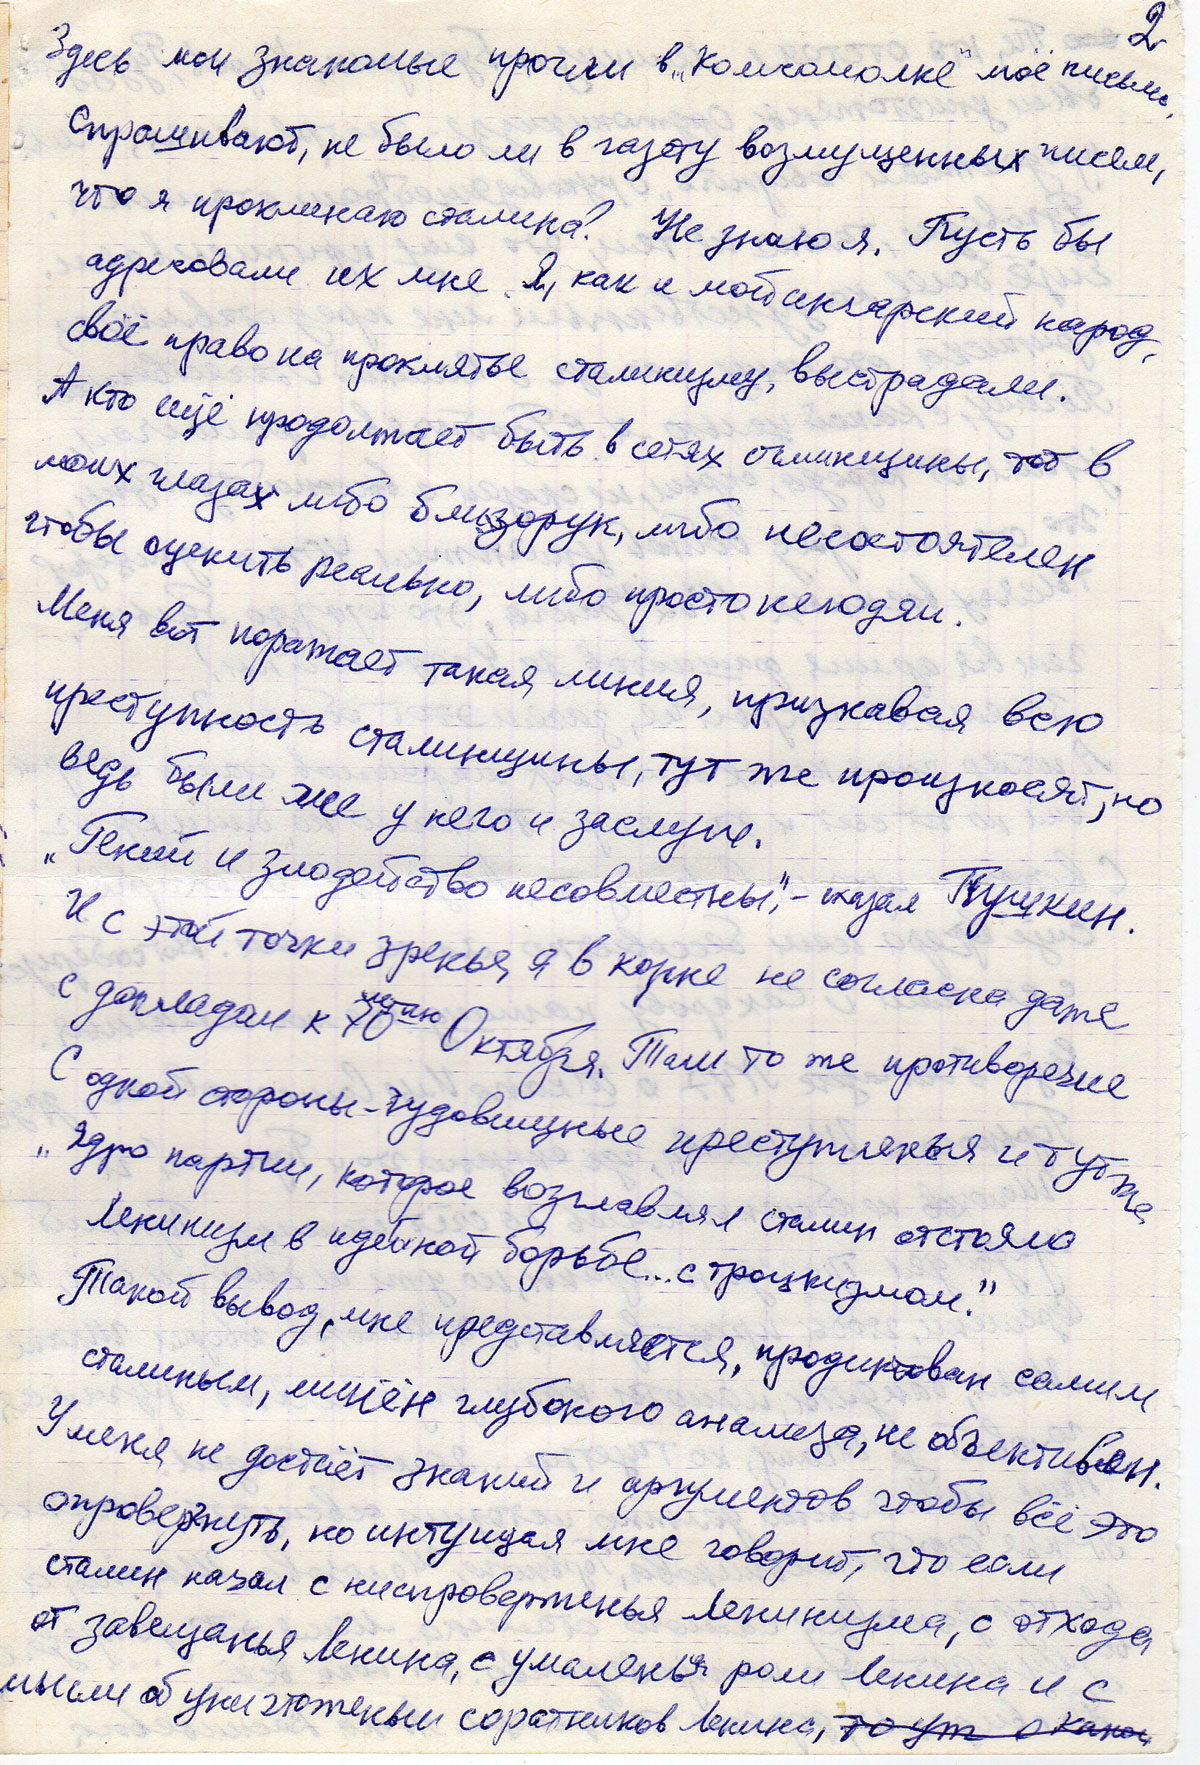 2
Здесь мои знакомые прочли в „Комсомолке" моё письмо.
Спрашивают, не было ли в газету возмущенных писем,
что я проклинаю сталина? Не знаю я. Пусть бы
адресовали их мне. Я, как и мой ингарский народ,
своё право на проклятье сталинизму, выстрадали.
А кто ещё продолжает быть в сетях сталинщины, тот в
моих глазах либо близорук, либо несостоятелен
чтобы оценить реально, либо просто нелюдян.
Меня вот поражает такая линия, признавая всю
преступность сталинщины, тут же произносят, но
ведь были же у него и заслуги.
„Гений и злодейство несовместны", - сказал Пушкин.
И с этой точки зренья, я в корне не согласна даже
с докладом к 70летию Октября. Там то же противоречие
С одной стороны - чудовищные преступленья и тут же
„Ядро партии, которое возглавлял сталин отстояло
Ленинизм в идейной борьбе... с троцкизмом."
Такой вывод, мне представляется, продиктован самим
сталиным, лишён глубокого анализа, не объективен.
У меня не достаёт знаний и аргументов чтобы всё это
опровергнуть, но интуиция мне говорит, что если
сталин начал с ниспроверженья Ленинизма, с отхода
от завещанья Ленина, с умаленья роли Ленина и с
мысли об уничтоженьи соратников Ленина, то уж о каком